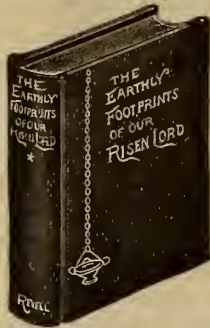 THE
EARTHLY
FOOTPRINTS
OF OUR
RISEN LORD
REVELL
THE
EARTHLY
FOOTPRINTS
OF OUR
RISEN LORD